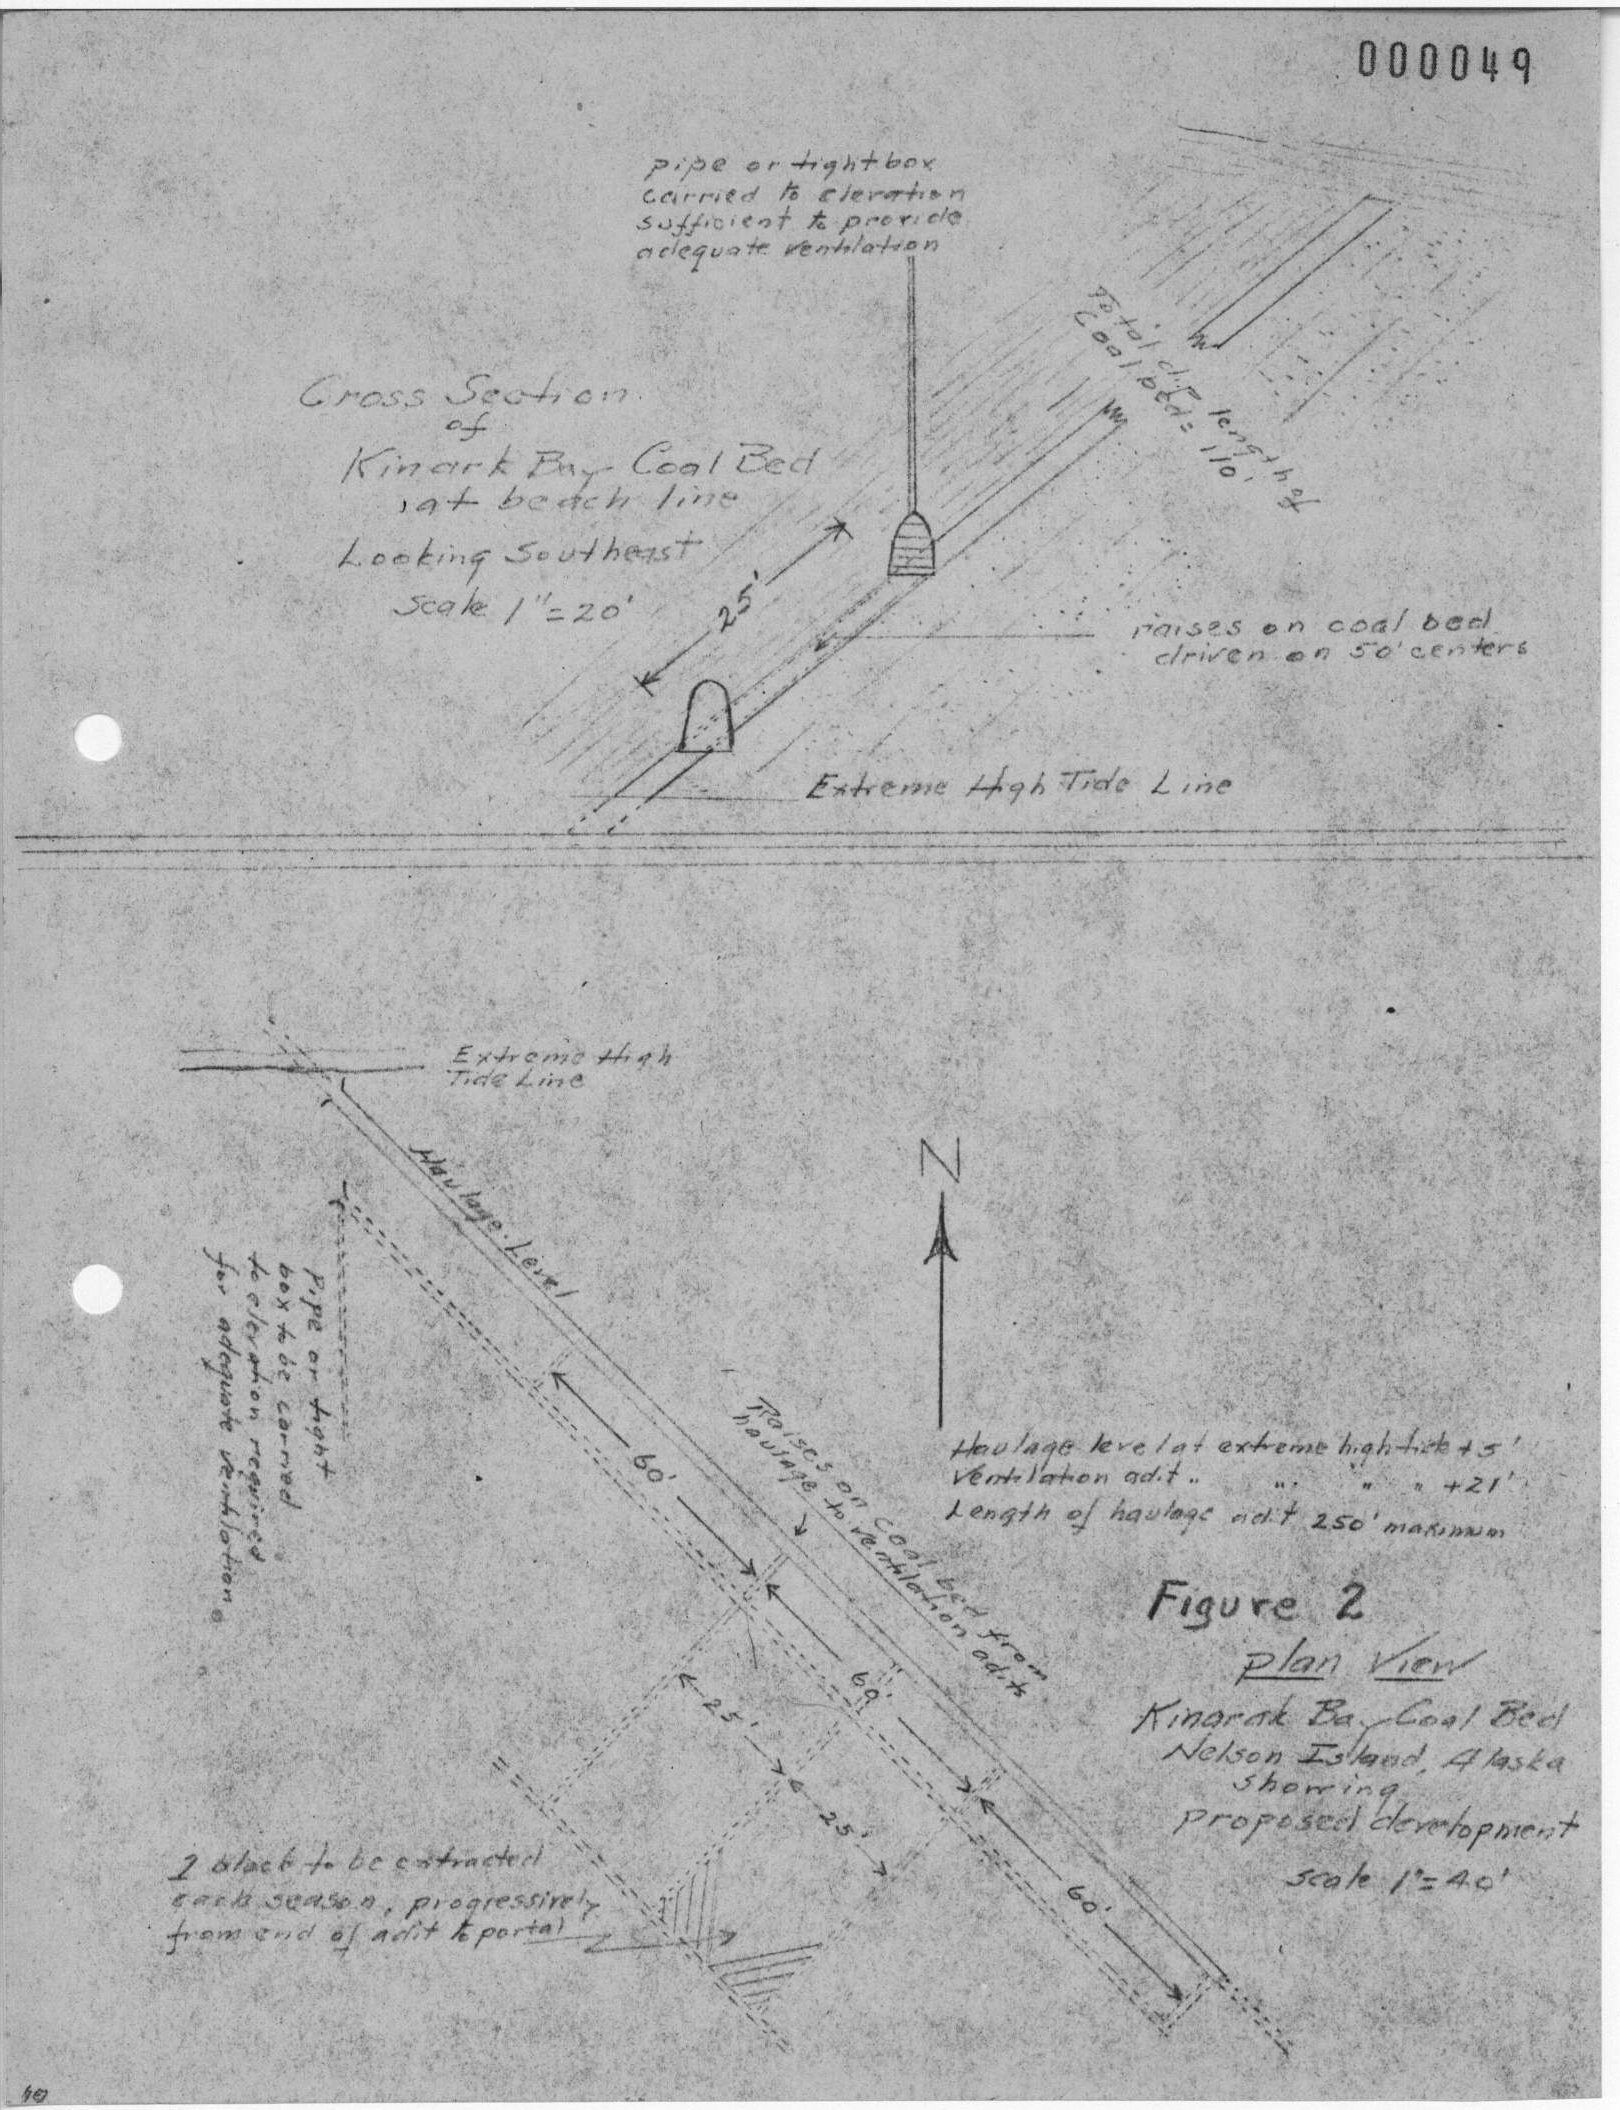 000049
pipe or tight box
carried to elevation
sufficient to provide
adequate ventilation
Total dip length of
Coal bed = 110'
Cross Section
of
Kinark Bay Coal Bed
at beach line
Looking Southeast
Scale 1"=20'
25'
raises on coal bed
driven on 50' centers
Extreme High Tide Line
Extreme High
Tide Line
Haulage Level
N
Pipe or tight
box to be carried
to elevation required
for adequate ventilation
60'
Raises on Coal bed from
haulage to ventilation adits
Haulage level at extreme high tide +5'
Ventilation adit " " " " +21'
Length of haulage adit 250' maximum
Figure 2
plan View
Kinarak Bay Coal Bed
Nelson Island, Alaska
showing
proposed development
scale 1"=40'
60'
25'
25'
60'
1 block to be extracted
each season, progressively
from end of adit to portal
40